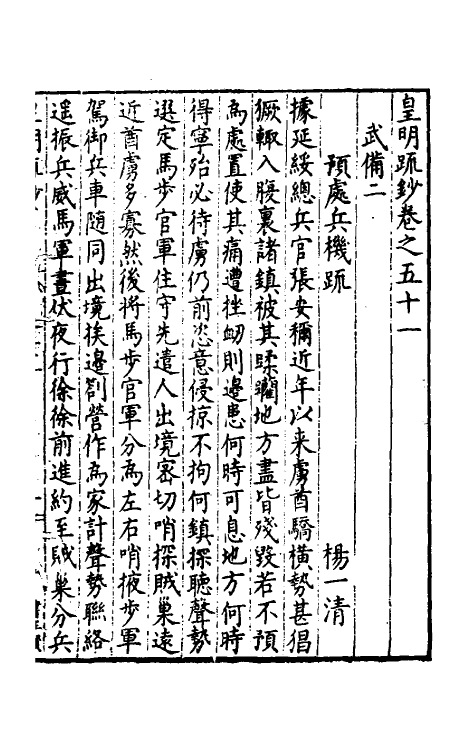 皇明疏鈔卷之五十一
武備二
預處兵機疏 楊一清
據延綏總兵官張安稱近年以来虜酋驕橫勢甚倡
獗輙入腹裏諸鎮被其蹂躪地方盡皆殘毀若不預
為處置使其痛遭挫衂則邊患何時可息地方何時
得寧殆必待虜仍前恣意侵掠不拘何鎮探聽聲勢
選定馬步官軍住守先遣人出境密切哨探賊巢遠
近酋虜多寡然後將馬步官軍分為左右哨掖步軍
駕御兵車隨同出境挨邊劄營作為家計聲勢聯絡
遥振兵威馬軍晝伏夜行徐徐前進約至賊巢分兵